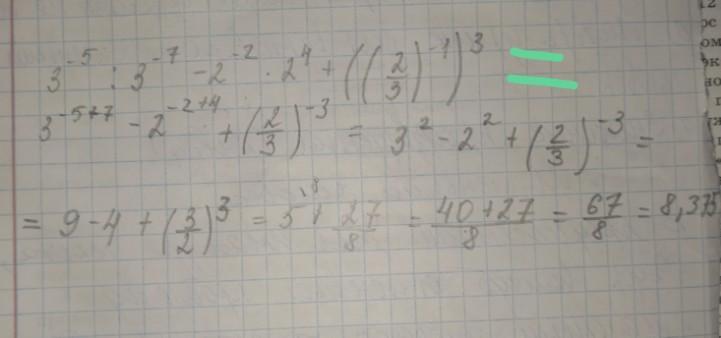 3⁻⁵ : 3⁻⁷ - 2⁻² · 2⁴ + ((2/3)⁻¹)³ =
3⁻⁵⁺⁷ - 2⁻²⁺⁴ + (2/3)⁻³ = 3² - 2² + (2/3)⁻³ =
= 9 - 4 + (3/2)³ = 5\⁸ + 27/8 = (40+27)/8 = 67/8 = 8,375